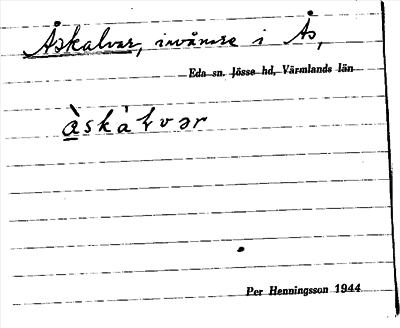 Åskalvar, invånare i Ås,
Eda sn. Jösse hd, Värmlands län
å̀skàɫvər
Per Henningsson 1944